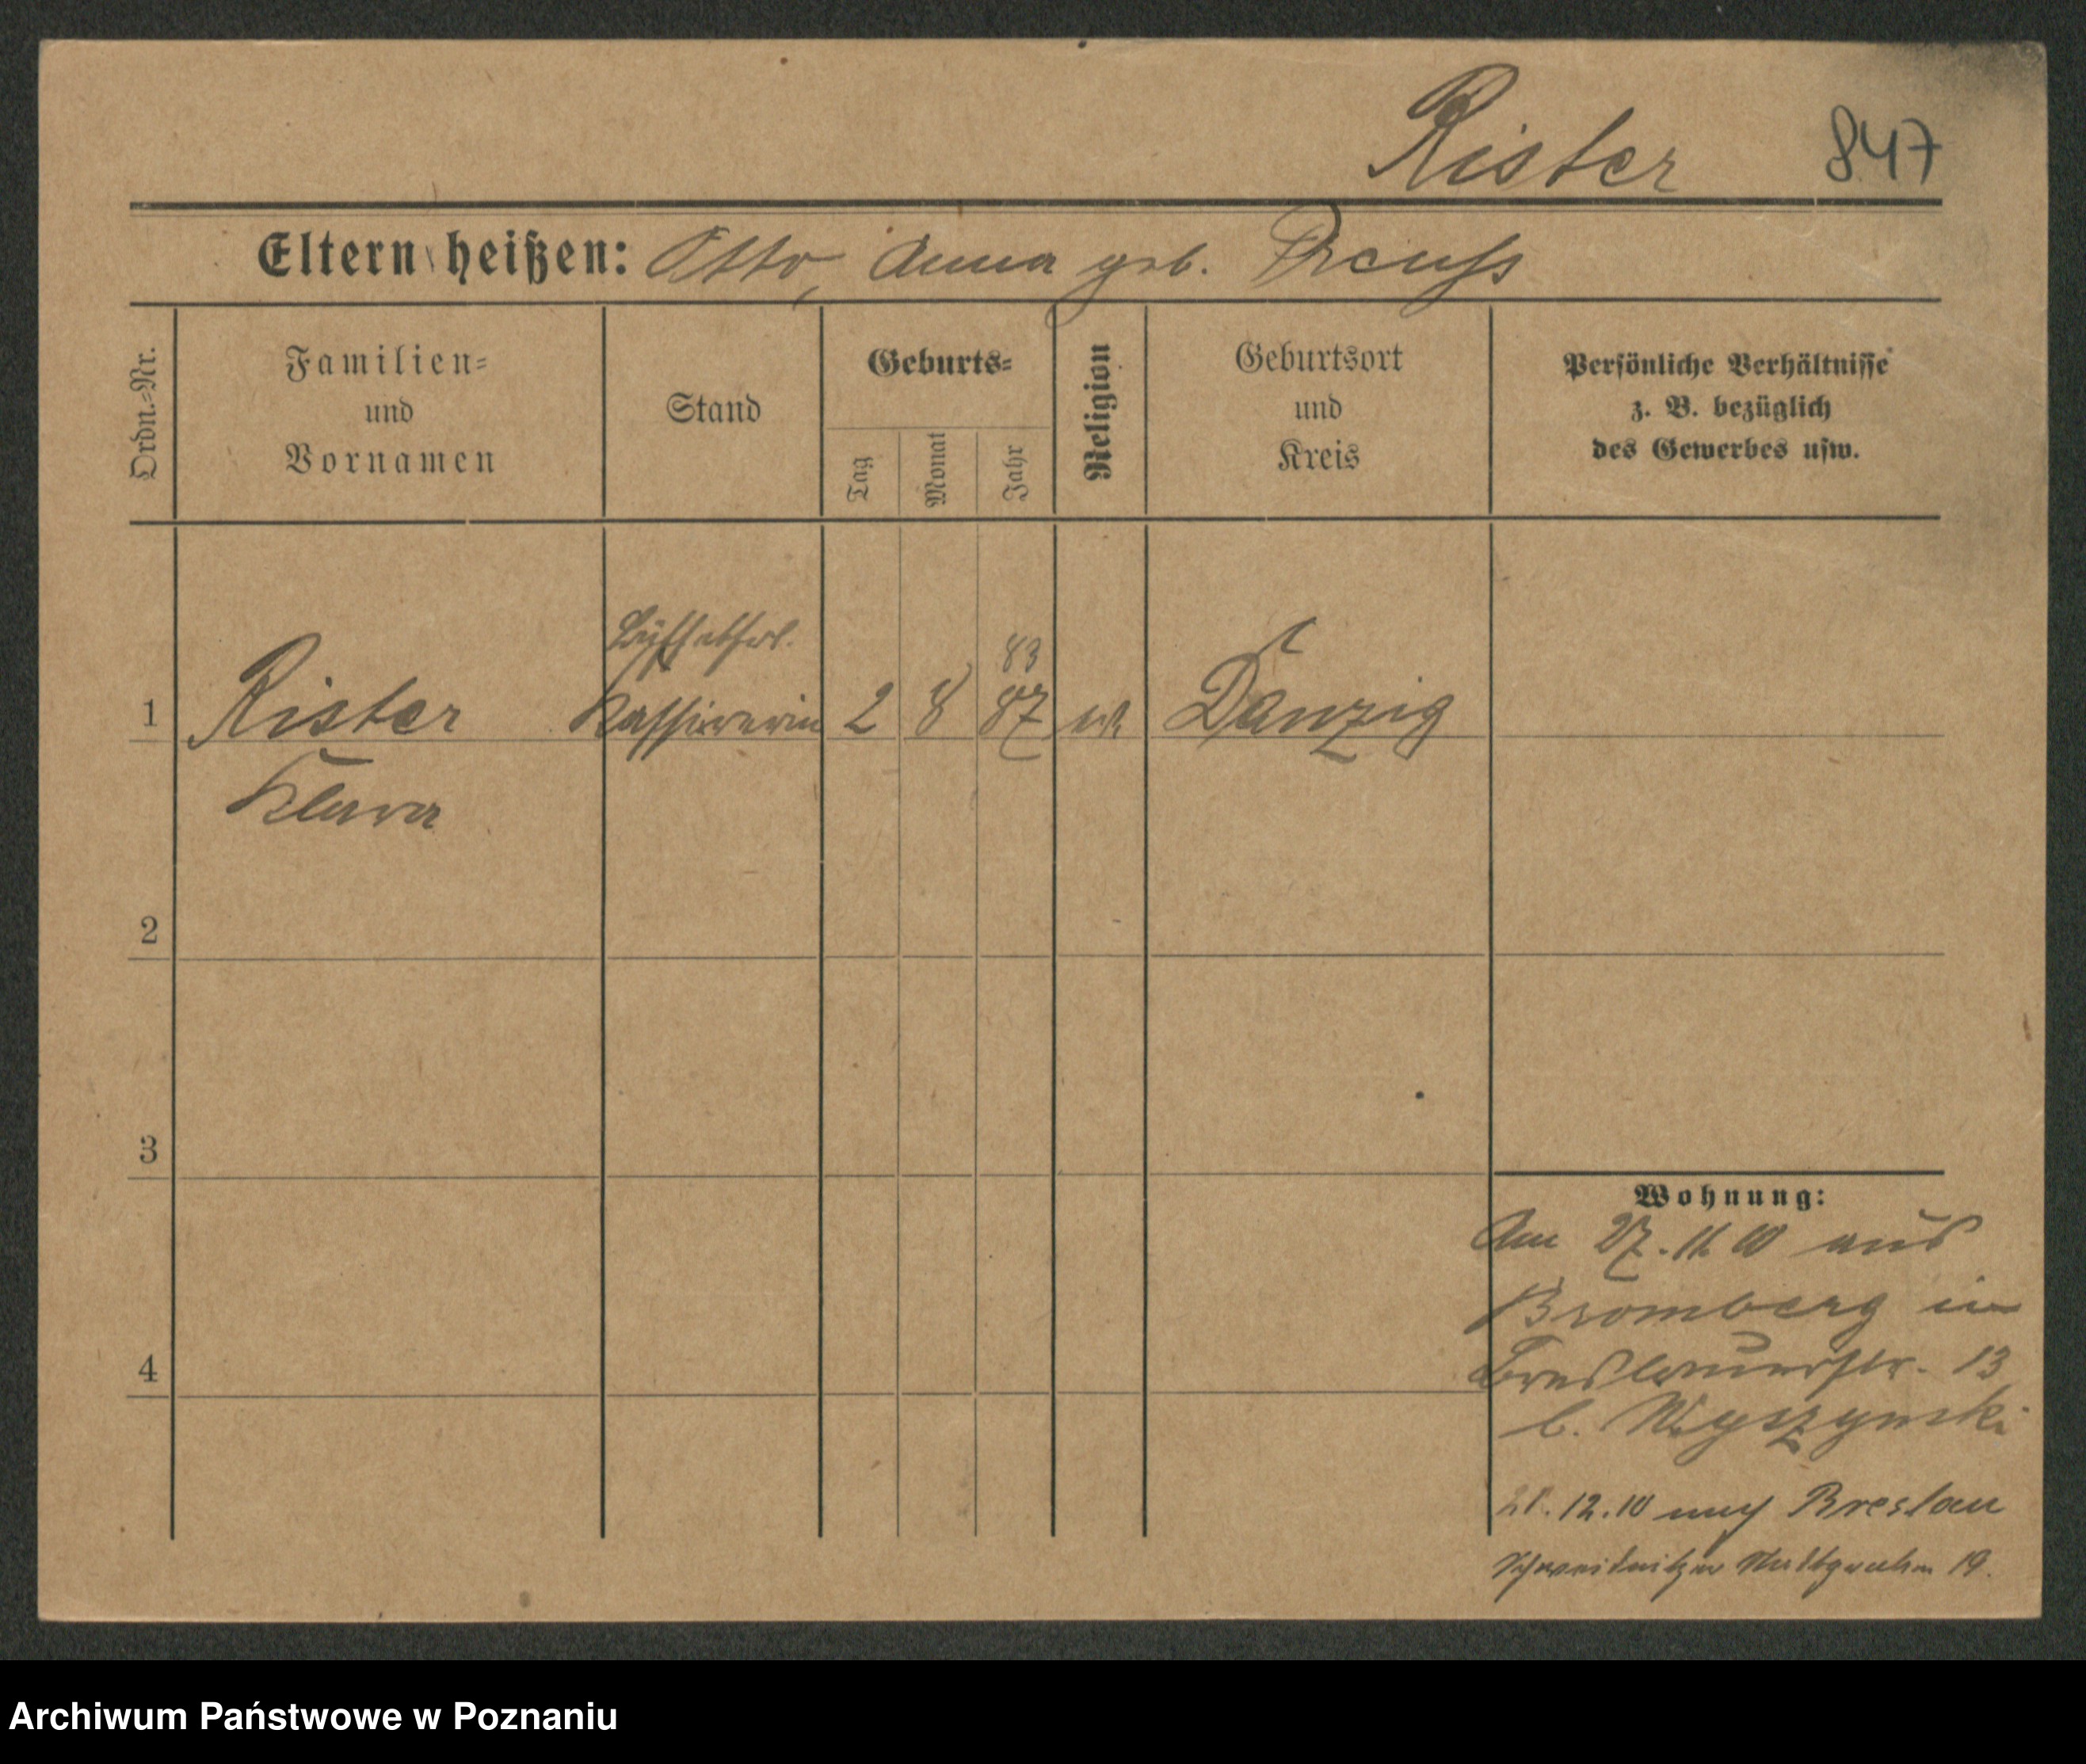 Rister 847
Eltern heißen: Otto, Anna geb. Preuß
Ordn.-Nr.
Familien-
und
Vornamen
Stand
Geburts-
Tag
Monat
Jahr
Religion
Geburtsort
und
Kreis
Persönliche Verhältnisse
z. B. bezüglich
des Gewerbes usw.
Büffetfrl.
83
1 Rister Kassiererin 2 8 87 ev. Danzig
Klara
2
3
Wohnung:
Am 27.11.10 aus
Bromberg in
4
Breslauerstr. 13
b. Wyszynski
12.10 nach Breslau
Schweidnitzer Stadtgraben 19.
Archiwum Państwowe w Poznaniu